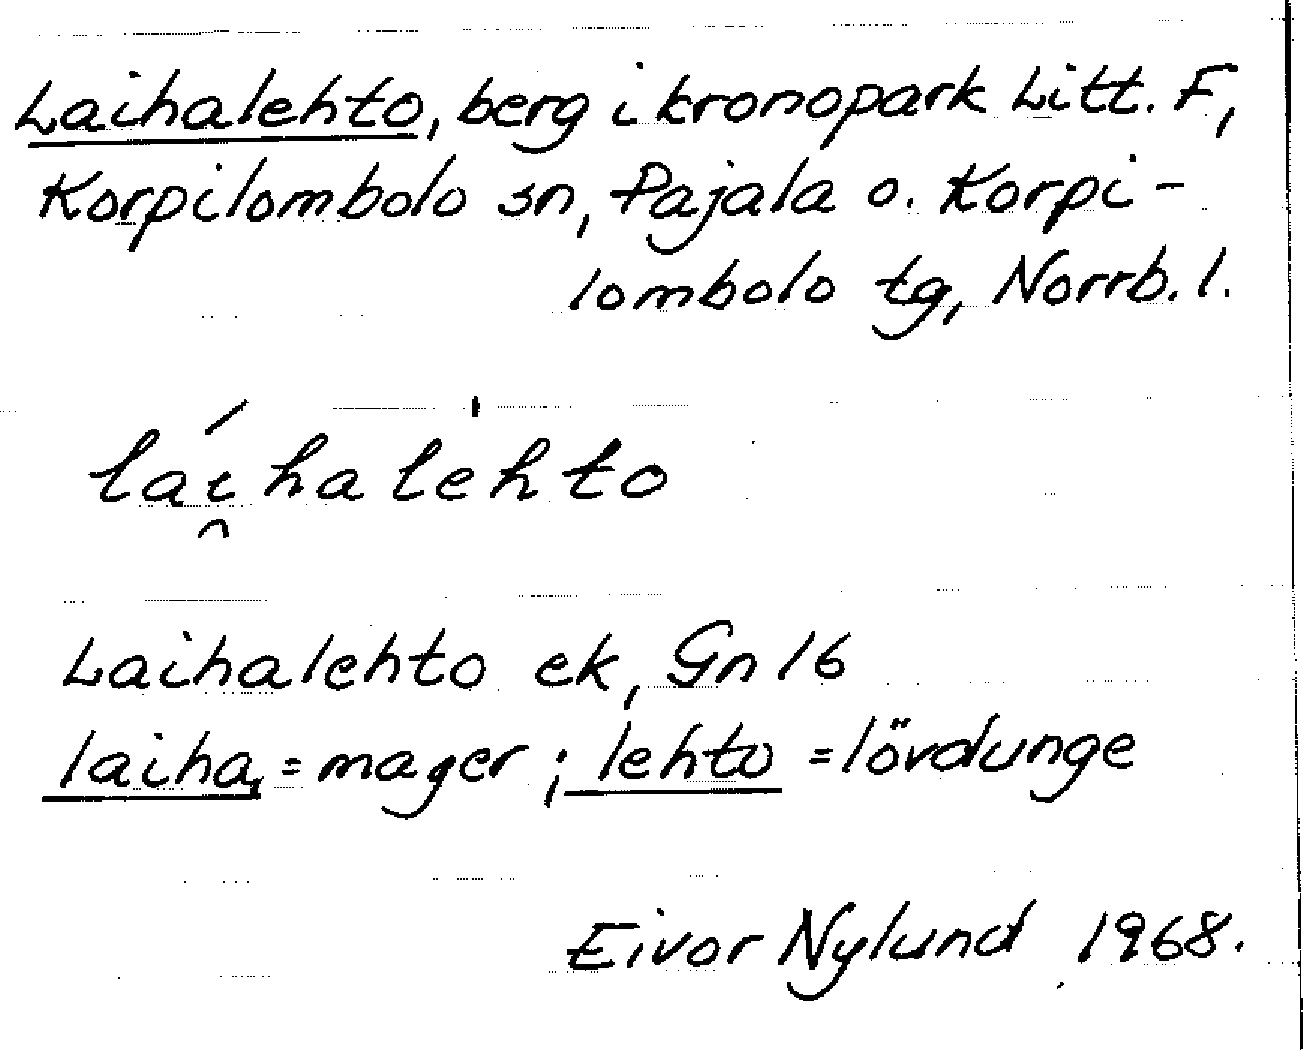 Laihalehto, berg i kronopark Litt. F,
Korpilombolo sn, Pajala o. Korpi-
lombolo tg, Norrb. l.
lái̯halˈehto
Laihalehto ek, Gn 16
laiha, = mager ; lehto = lövdunge
Eivor Nylund 1968.